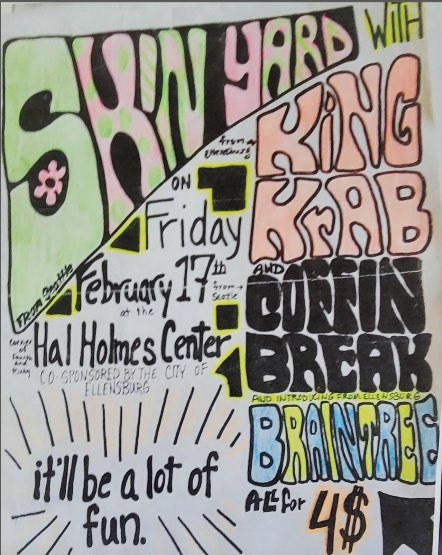 SKIN YARD WITH
FROM Seattle
from
Ellensburg
KING
KrAB
ON
Friday
February 17th
at the
Hal Holmes Center
CO-SPONSORED BY THE CITY OF
ELLENSBURG
AND
from
COFFIN
BREAK
AND INTRODUCING FROM ELLENSBURG
BRAINTREE
All for 4$
it'll be a lot of
fun.